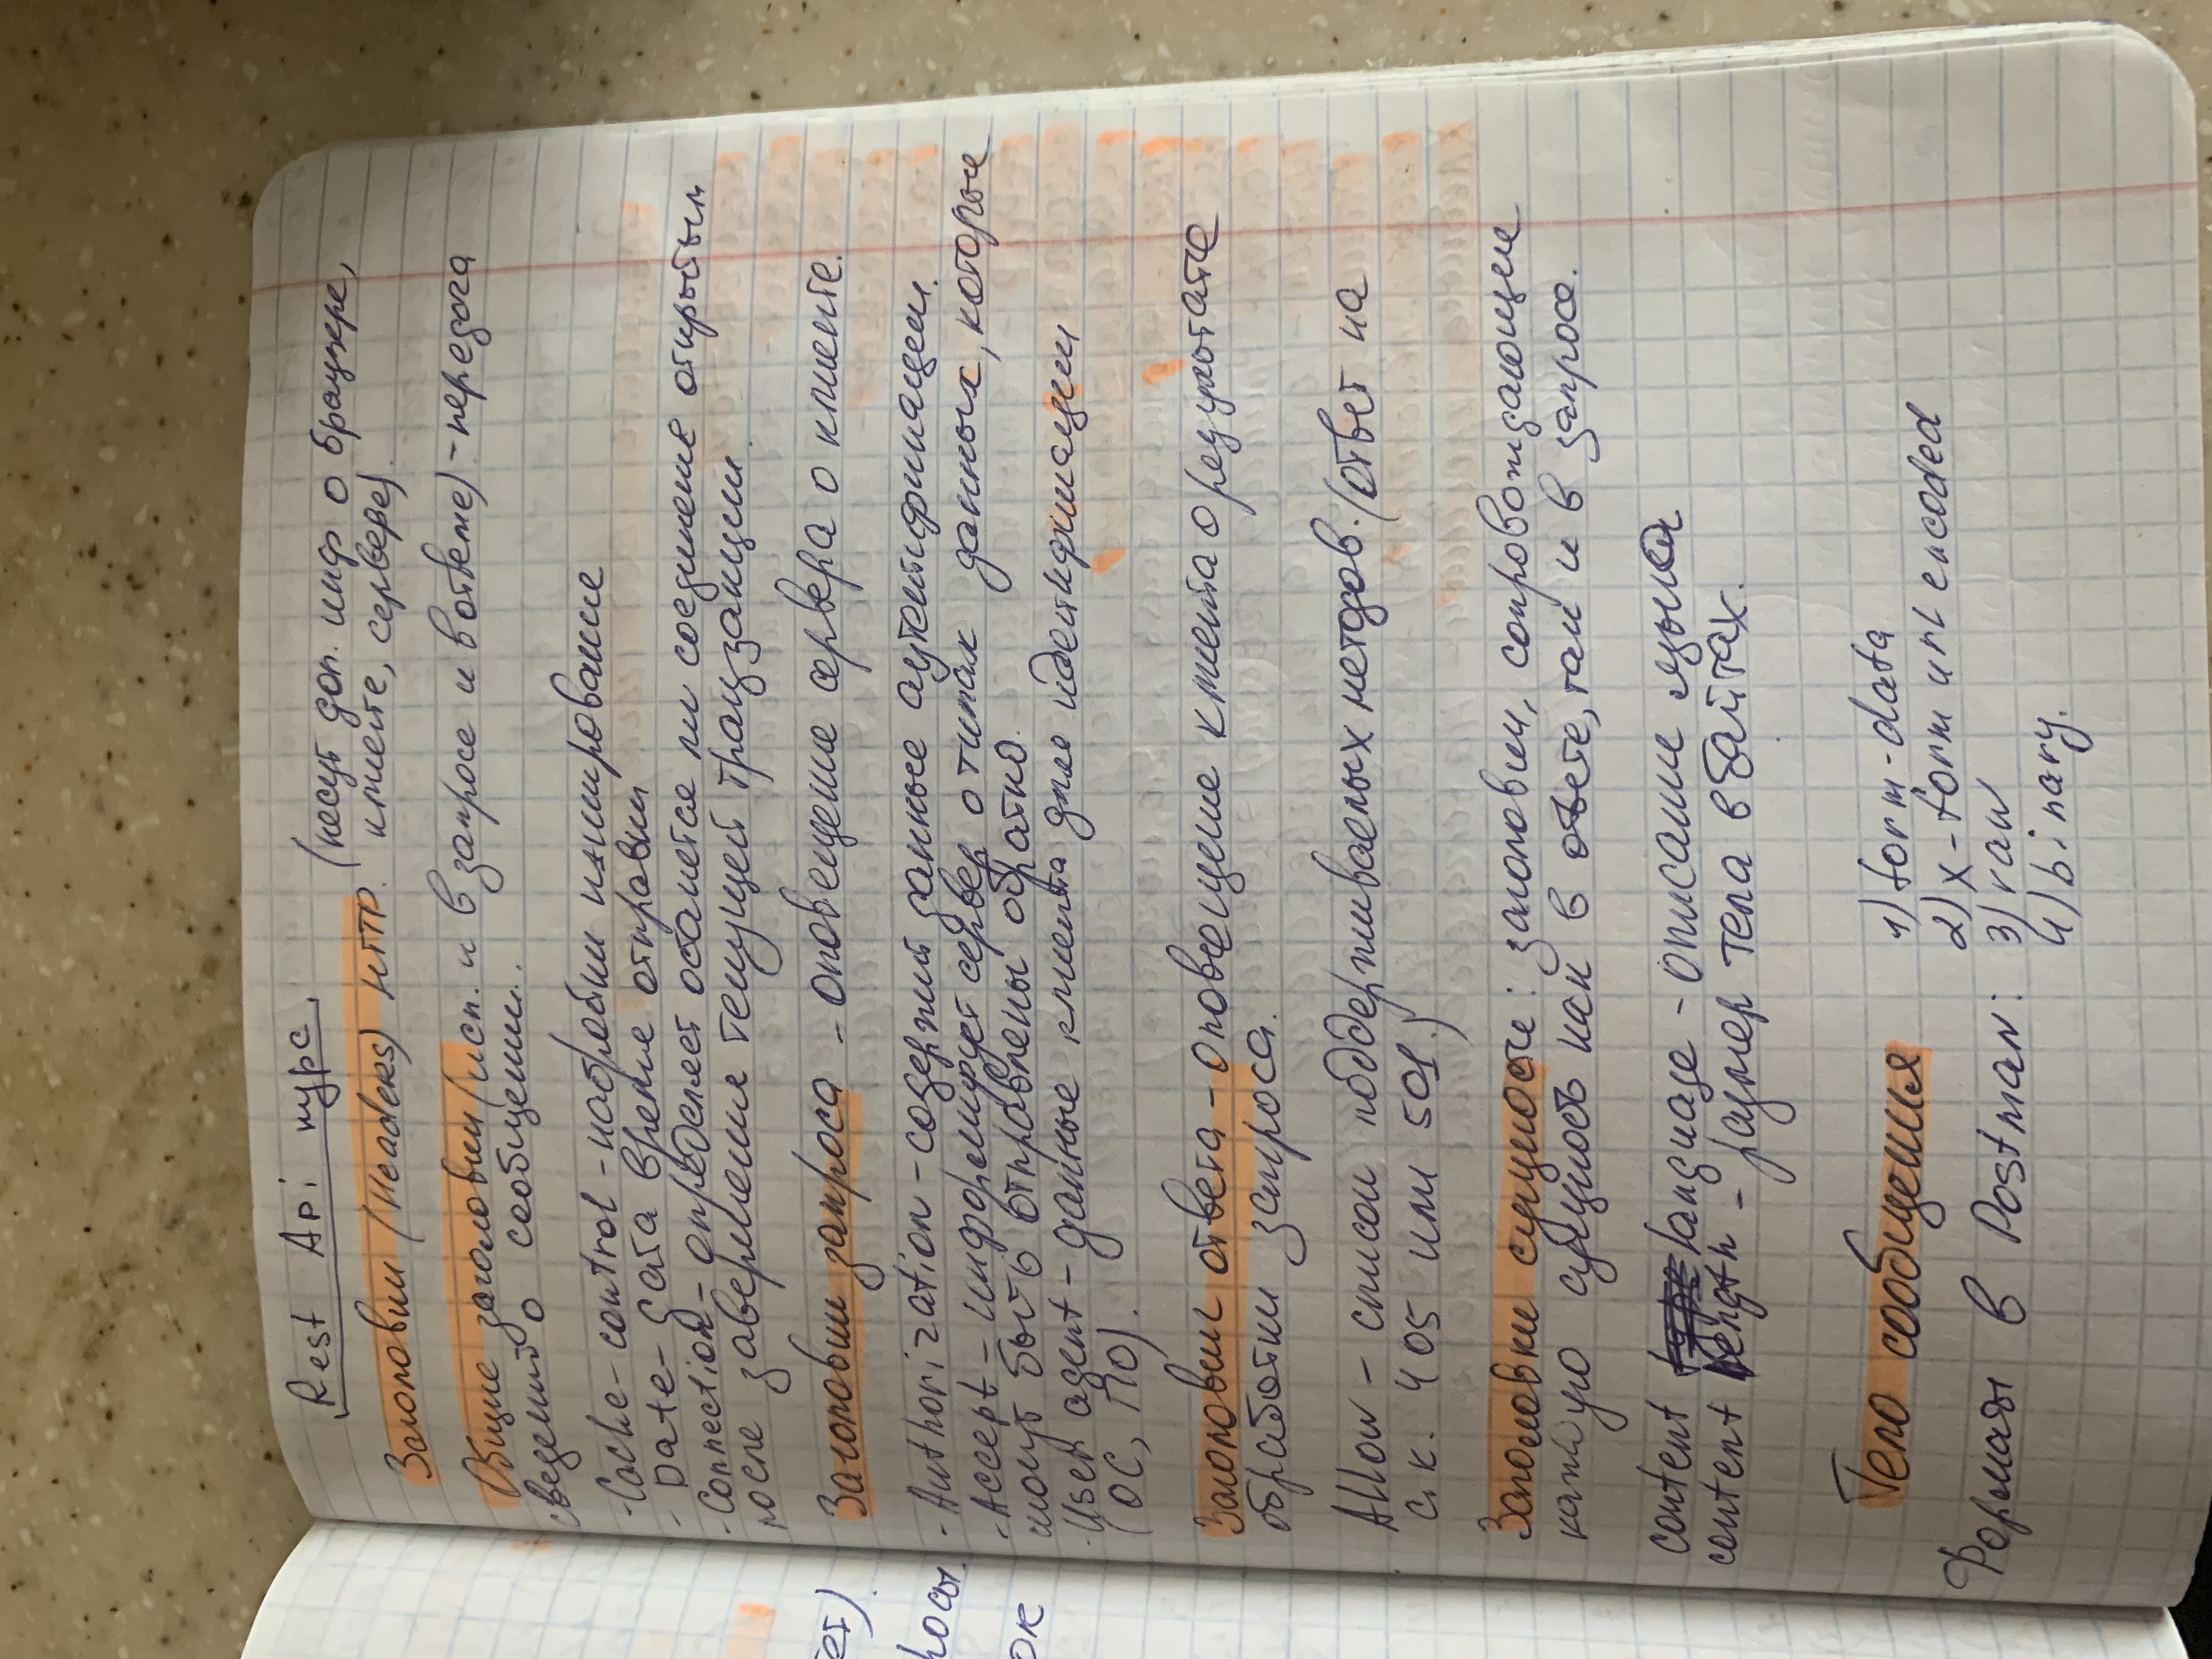 Rest Api курс.
(несут доп. инф о браузере,
Заголовки (Headers) HTTP. клиенте, сервере).
Общие заголовки (исп. и в запросе и в ответе) - передача
сведений о сообщении.
- Cache-control - настройки кэширование
- Date - дата время отправки
- Connection - определяет останется ли соединение открытым
после завершения текущей транззакции.
Заголовки запроса - оповещение сервера о клиенте.
- Authorization - содержит данные аутентификации.
- Accept - информирует сервер о типах данных, которые
могут быть отправлены обратно.
- User agent - данные клиента для идентификации
(ОС, ПО).
Заголовки ответа - оповещение клиента о результате
обработки запроса.
Allow - список поддерживаемых методов. (ответ на
с.к. 405 или 501.)
Заголовки сущности: заголовки, сопровождающие
каждую сущность как в ответе, так и в запросе.
content language - описание языка
content length - размер тела в байтах.
Тело сообщения
Форматы в Postman:
1) form-data
2) x-form url encoded
3) raw
4) binary.
ет).
ок